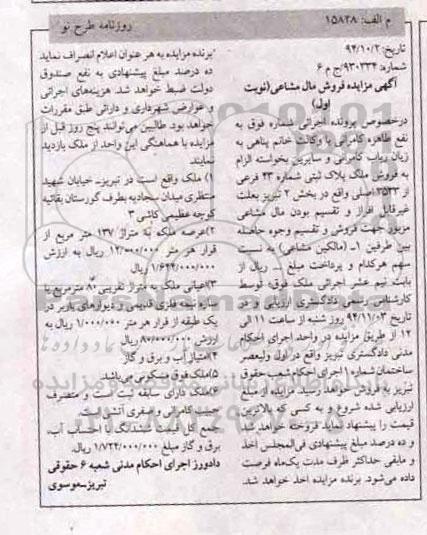 م الف: ۱۵۸۲۸
روزنامه طرح نو
تاریخ: ۹۴/۱۰/۲
شماره: ۹۳۰۳۳۴/ج م ۶
آگهی مزایده فروش مال مشاعی(نوبت
اول)
درخصوص پرونده اجرائی شماره فوق به
نفع طاهره کامرانی با وکالت خانم پناهی به
زیان رباب کامرانی و سایرین بخواسته الزام
به فروش ملک پلاک ثبتی شماره ۴۳ فرعی
از ۳۵۴۳ اصلی واقع در بخش ۲ تبریز بعلت
غیرقابل افراز و تقسیم بودن مال مشاعی
مزبور جهت فروش و تقسیم وجوه حاصله
بین طرفین ۱ـ (مالکین مشاعی) به نسبت
سهم هرکدام و پرداخت مبلغ ... ریال از
بابت نیم عشر اجرائی ملک فوق، توسط
کارشناس رسمی دادگستری ارزیابی و در
تاریخ ۹۴/۱۱/۰۳ روز شنبه از ساعت ۱۱ الی
۱۲ از طریق مزایده در واحد اجرای احکام
مدنی دادگستری تبریز واقع در اول ولیعصر
ساختمان شماره ۱ اجرای احکام شعب حقوق
تبریز به فروش خواهد رسید. مزایده از مبلغ
ارزیابی شده شروع و به کسی که بالاترین
قیمت را پیشنهاد نماید فروخته خواهد شد
و ده درصد مبلغ پیشنهادی فی‌المجلس اخذ
و مابقی حداکثر ظرف مدت یک‌ماه فرصت
داده می‌شود. برنده مزایده اخذ خواهد شد.
برنده مزایده به هر عنوان اعلام انصراف نماید
ده درصد مبلغ پیشنهادی به نفع صندوق
دولت ضبط خواهد شد. هزینه‌های اجرائی
و عوارض شهرداری و دارائی طبق مقررات
خواهد بود. طالبین می‌توانند پنج روز قبل از
مزایده با هماهنگی این واحد از ملک بازدید
نمایند
۱) ملک واقع است در تبریزـ خیابان شهید
منتظری میدان سجادیه بطرف گورستان بقائیه
کوچه عظیمی کاشی ۳
۲)عرصه ملک به متراژ ۱۳۷ متر مربع از
قرار هر متر ۱۲/۰۰۰/۰۰۰ ریال به ارزش
۱/۶۴۴/۰۰۰/۰۰۰ ریال
۳)اعیانی ملک به متراژ تقریبی ۸۰ مترمربع با
سازه نیمه فلزی قدیمی و دیوارهای باربر در
یک طبقه از قرار هر متر ۱/۰۰۰/۰۰۰ ریال به
ارزش ۸۰/۰۰۰/۰۰۰ ریال
۴)امتیاز آب و برق و گاز
۵)ملک فوق مسکونی می‌باشد.
۶)ملک دارای سابقه ثبت است و متصرف
حبیب کامرانی و صغری آتشی است.
جمع کل قیمت ششدانگ با احتساب آب،
برق و گاز مبلغ ۱/۷۲۴/۰۰۰/۰۰۰ ریال.
دادورز اجرای احکام مدنی شعبه ۶ حقوقی
تبریزـ موسوی